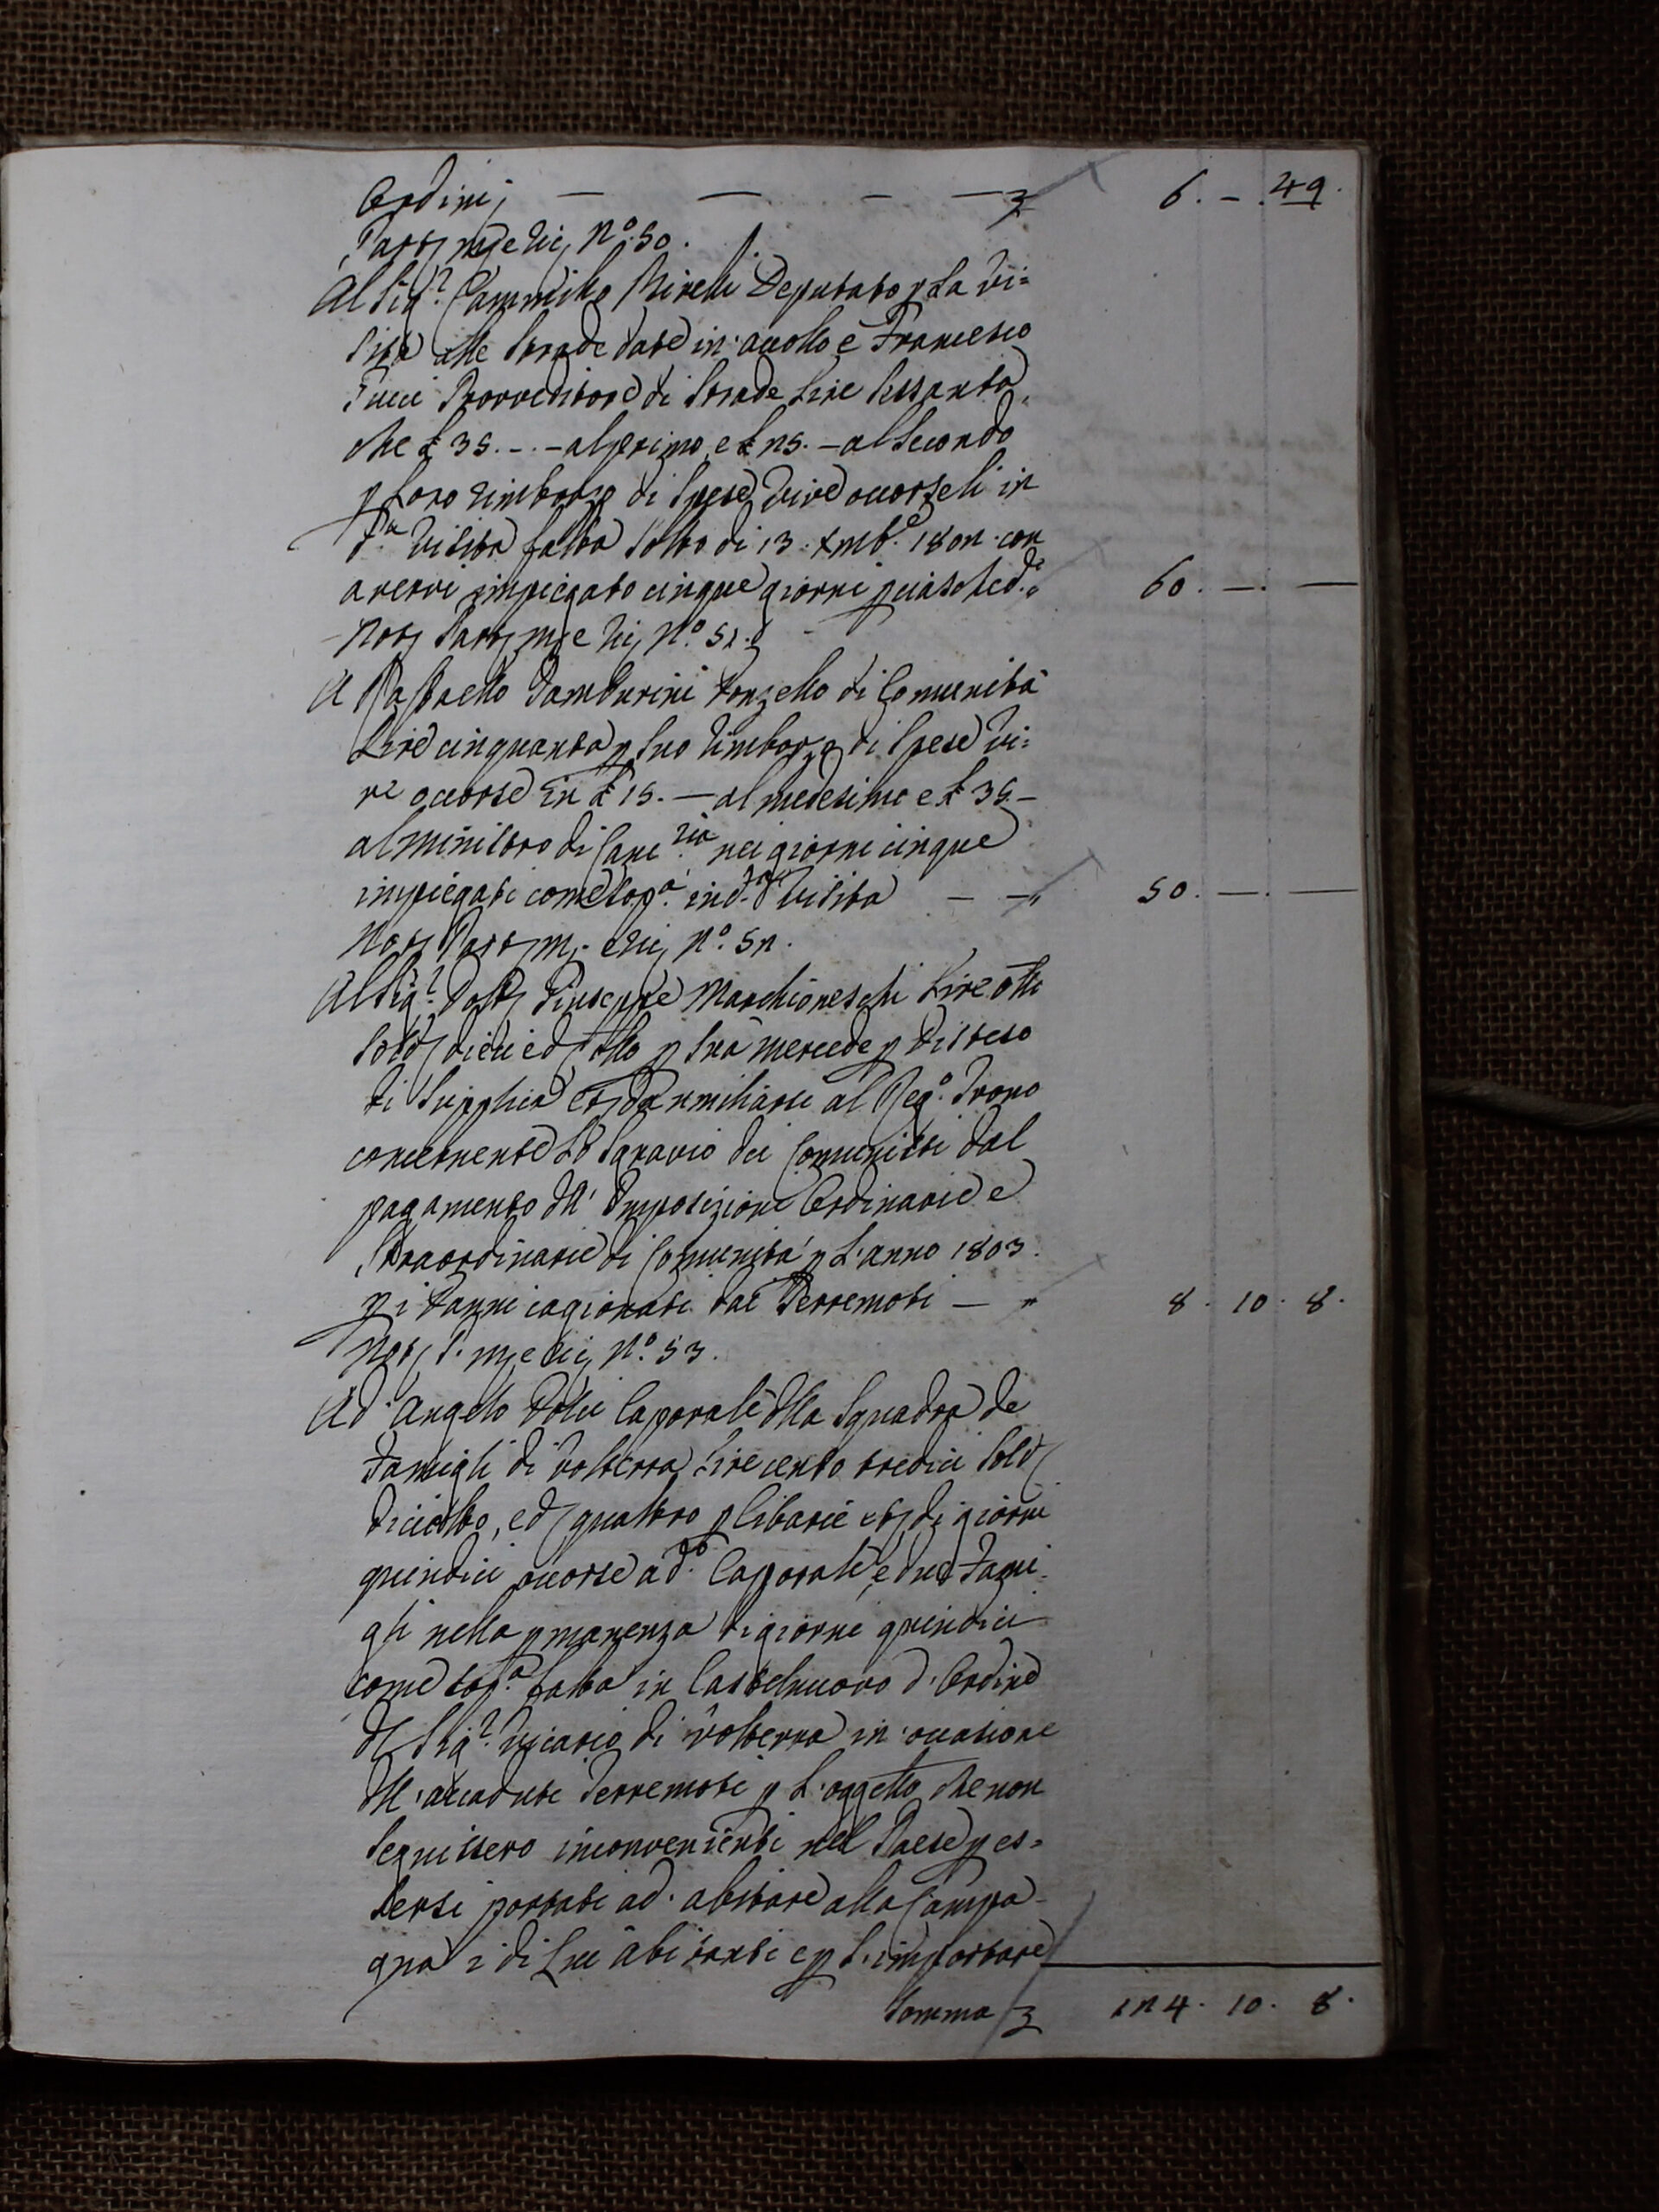 Ordini, — — — — £ 6. – . 49.
N.º 50.
Al Sig.r Cammillo Deputato p la Vi=
sita alle Strade date in accollo e Francesco
Provveditore di Strade Lire Sessanta,
che £ 35. – . – al primo, e £ 25. – al Secondo
p loro rimborzo di Spese vive occorseli in
d.a Visita fatta Sotto di 13. 1802. con
avervi impiegato cinque giorni p ciasched.o 60. —. —
N.º 51.
A Raffaello Tamburini Donzello di Comunità
Lire cinquanta p suo rimborzo di Spese vi=
ve occorse in £ 15. — al medesimo e £ 35. –
al ministro di Canc.ria nei giorni cinque
impiegati come sop.a in d.a Visita — — " 50. —. —
N.º 52.
Al Sig.r Dott. Giuseppe Marchioneschi Lire otto
Sold. dieci e d. otto p sua mercede p disteso
di Supplica da umiliarsi al Reg.o Trono
concernente lo Sgravio dei Comunisti dal
pagamento dll' Imposizioni Ordinarie e
Straordinarie di Comunità p L'anno 1803.
p i danni cagionati dai Terremoti — " 8. 10. 8.
N.º 53.
Ad Angelo Dolci Caporale dlla Squadra de
Famigli di Volterra Lire cento tredici Sold.
diciotto, e d. quattro p Cibarie di giorni
quindici occorse a d.o Caporale, e due Fami=
gli nella pmanenza di giorni quindici
come sop.a fatta in Castelnuovo d'Ordine
dl Sig.r Vicario di Volterra in occasione
dll' accaduti Terremoti p L'oggetto che non
Seguissero inconvenienti nel Paese p es=
sersi portati ad abitare alla Campa=
gna i di Lui abitanti e p L'importare
Somma £ 124. 10. 8.